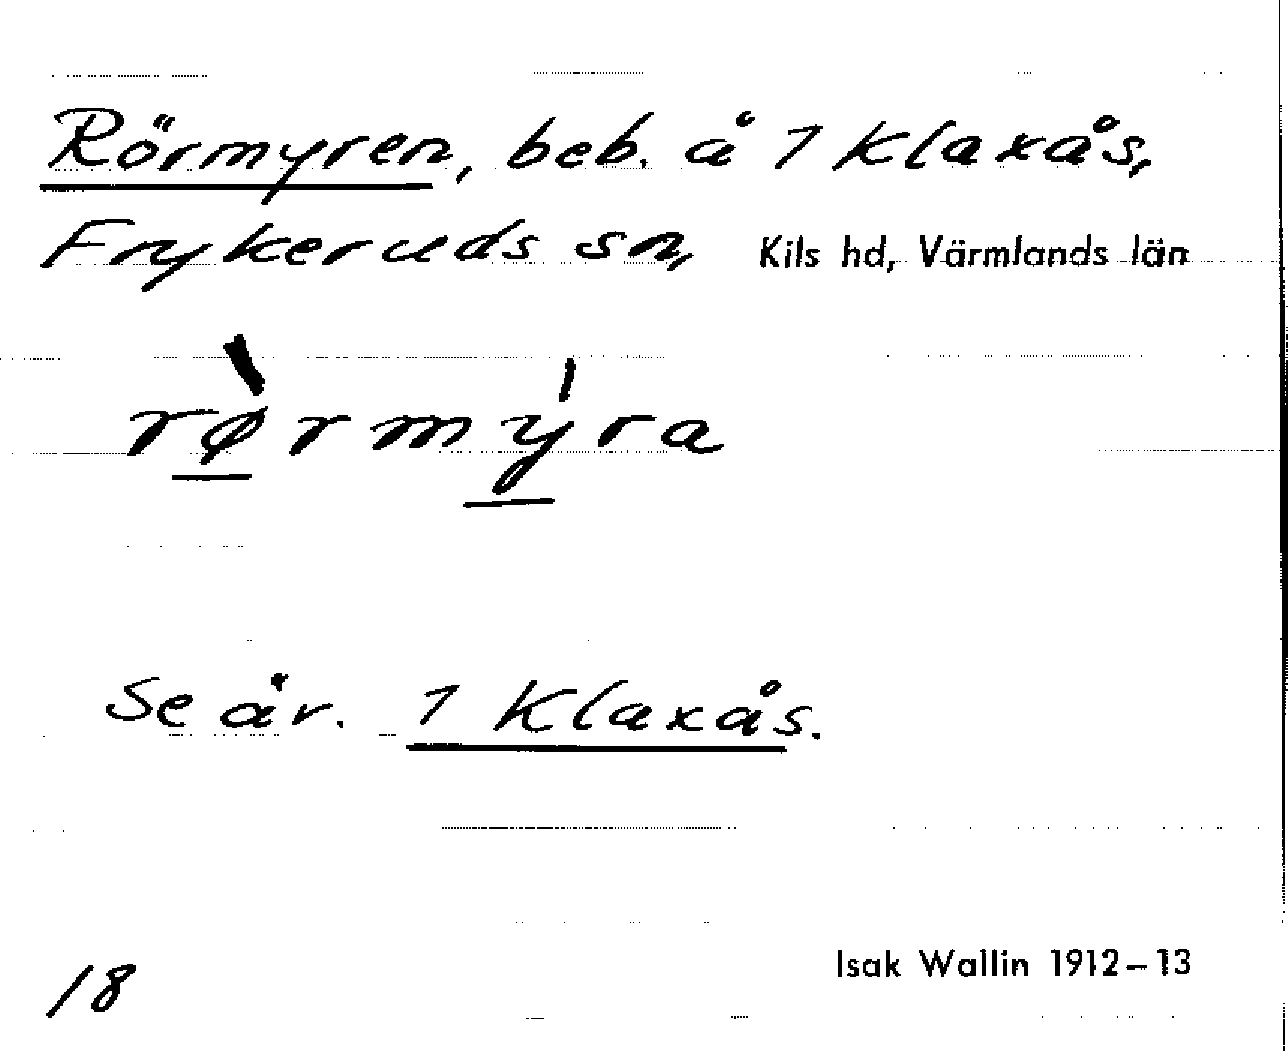 Rörmyren, beb. å 1 Klaxås,
Frykeruds sn, Kils hd, Värmlands län
rø̀rmýra
Se äv. 1 Klaxås.
18
Isak Wallin 1912–13